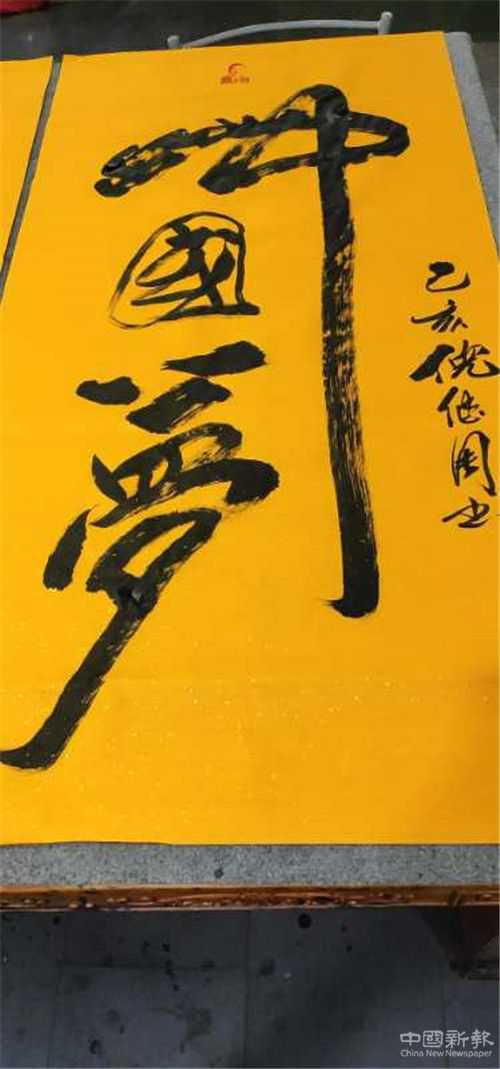 中
國
夢
亥倪书
中國新報
China New Newspaper